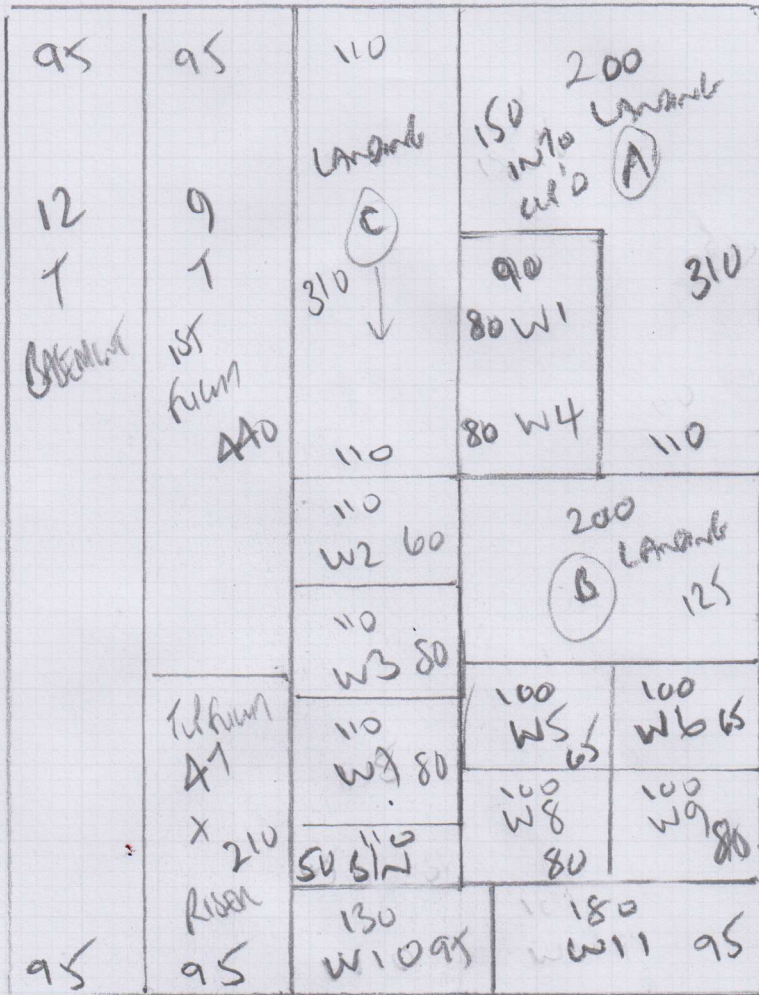 95
12
T
BASEMENT
95
95
9
T
1ST
440
4T
X 210
RISER
95
110
LANDING
C
310
110
110
W2 60
110
W3 80
110
80
110
50 BIN
130
W10 95
200
LANDING
A
150
INTO
CUP'D
310
90
80 W1
80 W4
110
200
LANDING
B
125
100
W5 65
100
W6 65
100
W8
80
100
W9 80
180
W11 95